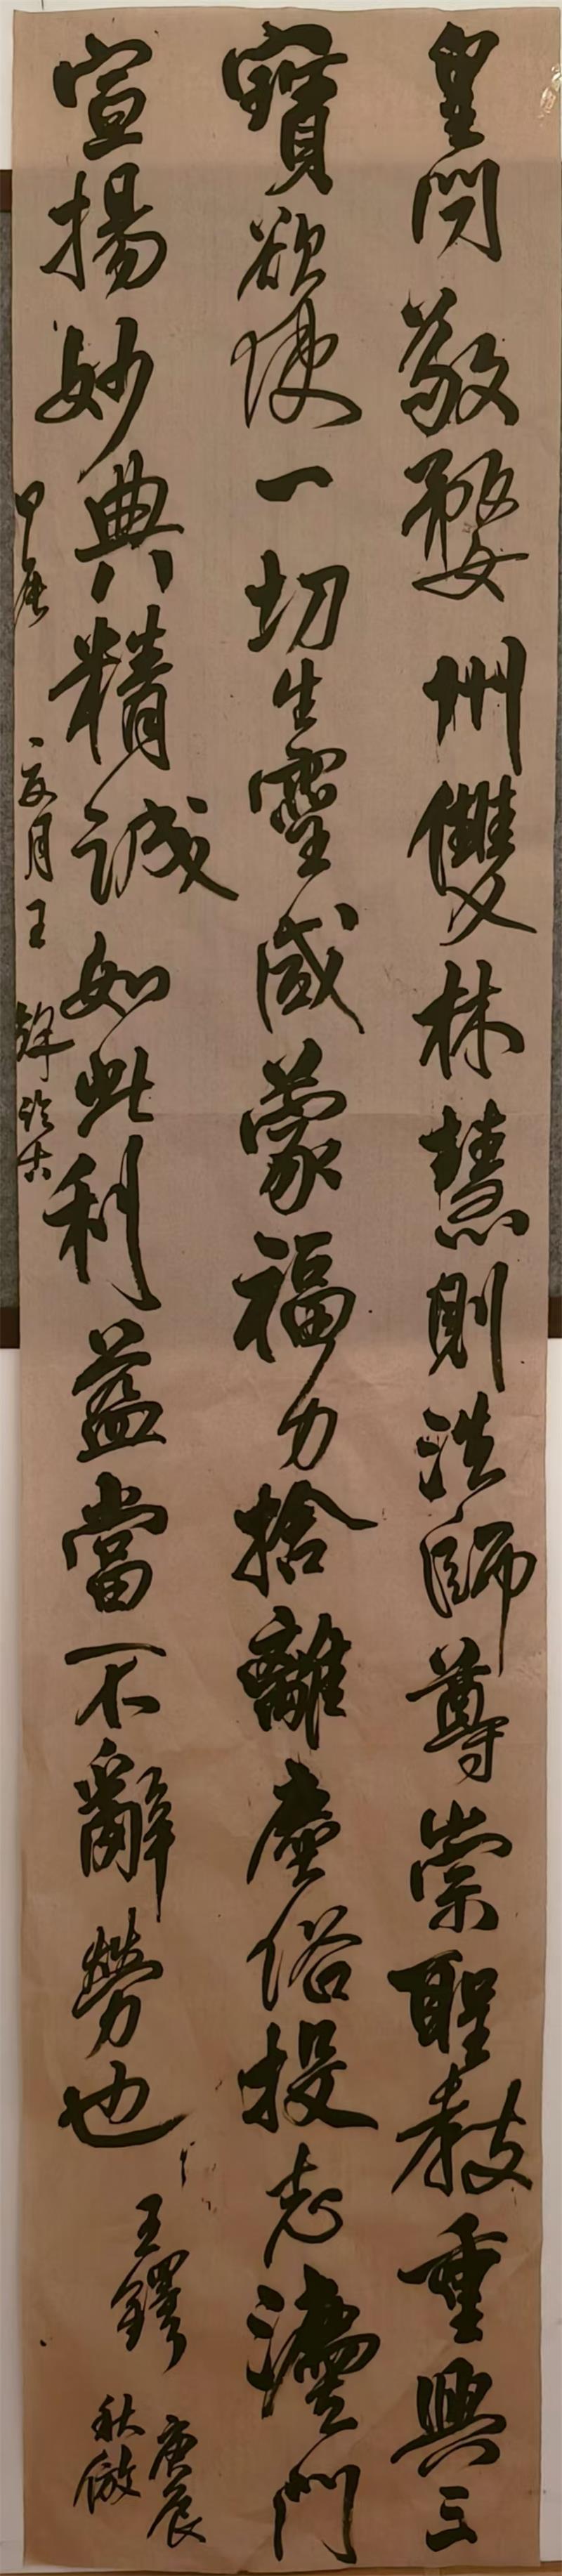 皇問敬婺州雙林慧則法師尊崇聖教重興三
寶欲使一切生靈咸蒙福力捨離塵俗投志法門
宣揚妙典精誠如此利益當不辭勞也
王鐸
庚辰
秋倣
甲辰
夏月王
臨古